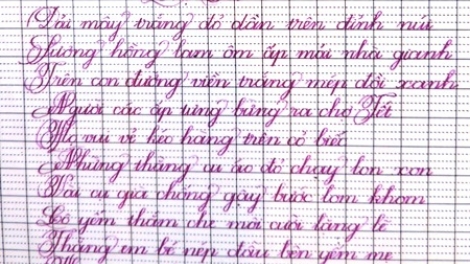 Dải mây trắng đỏ dần trên đỉnh núi
Sương hồng lam ôm ấp mái nhà gianh
Trên con đường viền trắng mép đồi xanh
Người các ấp tưng bừng ra chợ Tết
Họ vui vẻ kéo hàng trên cỏ biếc
Những thằng cu áo đỏ chạy lon xon
Vài cụ già chống gậy bước lom khom
Cô yếm thắm che môi cười lặng lẽ
Thằng em bé nép đầu bên yếm mẹ